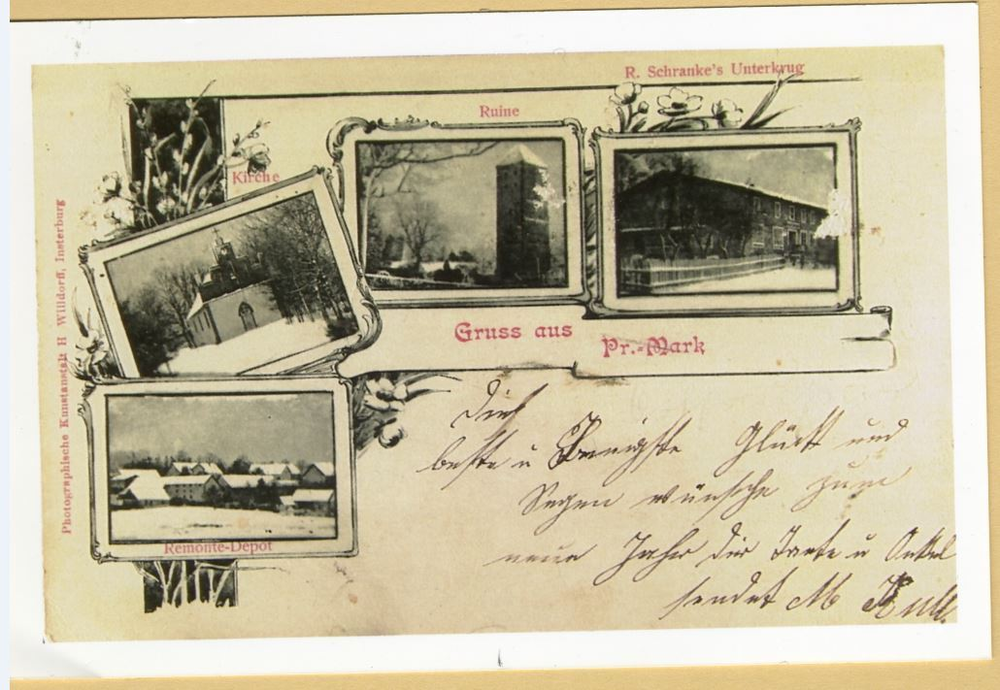 R. Schranke's Unterkrug
Ruine
Kirche
Photographische Kunstanstalt H Willdorff, Insterburg
Gruss aus
Pr.-Mark
Remonte-Depot
Die
beste u Glück und
Segen wünsche zum
neuen Jahr Tante u Onkel
sendet M